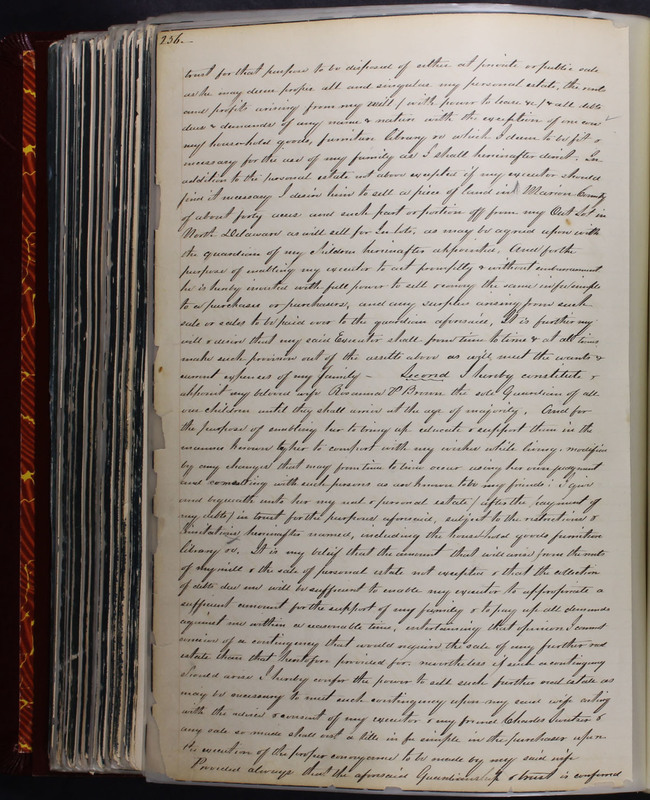 236.-
trust for that purpose to be disposed of either at private or public sale
as he may deem proper all and singular my personal estate, the rents
and profits arising from my mill (with power to lease &c) & all debts
dues & demands of any name & nature with the exception of one cow
my household goods, furniture library &c which I deem to be fit &
necessary for the use of my family as I shall hereinafter direct. In
addition to the personal estate not above excepted if my executor should
find it necessary I desire him to sell a piece of land in Marion County
of about forty acres and such part or portion off from my Out Lot in
North Delaware as will sell for In lots, as may be agreed upon with
the guardian of my children hereinafter appointed. And for the
purpose of enabling my executor to act promptly & without embarrassment
he is hereby invested with full power to sell & convey the same in fee simple
to a purchaser or purchasers, and any surplus arising from such
sale or sales to be paid over to the guardian aforesaid. It is further my
will & desire that my said Executor shall from time to time & at all times
make such provision out of the assetts above as will meet the wants &
current expenses of my family - Second I hereby constitute &
appoint my beloved wife Rosanna Brown the sole Guardian of all
our children until they shall arrive at the age of majority. And for
the purpose of enabling her to bring up educate & support them in the
manner known to her to comport with my wishes while living, modified
by any changes that may from time to time occur using her own judgment
and consulting with such persons as are known to be my friends: I give
and bequeath unto her my real & personal estate (after the payment of
my debts) in trust for the purposes aforesaid, subject to the restrictions &
limitations hereinafter named, including the household goods furniture
library &c. It is my belief that the amount that will arise from the rents
of my mill & the sale of personal estate not excepted & that the collection
of debts due me will be sufficient to enable my executor to appropriate a
sufficient amount for the support of my family & to pay up all demands
against me within a reasonable time, entertaining that opinion I cannot
conceive of a contingency that would require the sale of any further real
estate than that heretofore provided for. nevertheless if such a contingency
should arise I hereby confer the power to sell such further real estate as
may be necessary to meet such contingency upon my said wife acting
with the advice & consent of my executor & my friend Charles &
any sale so made shall vest a title in fee simple in the purchaser upon
the execution of the proper conveyance to be made by my said wife
Provided always that the aforesaid Guardianship & trust is conferred